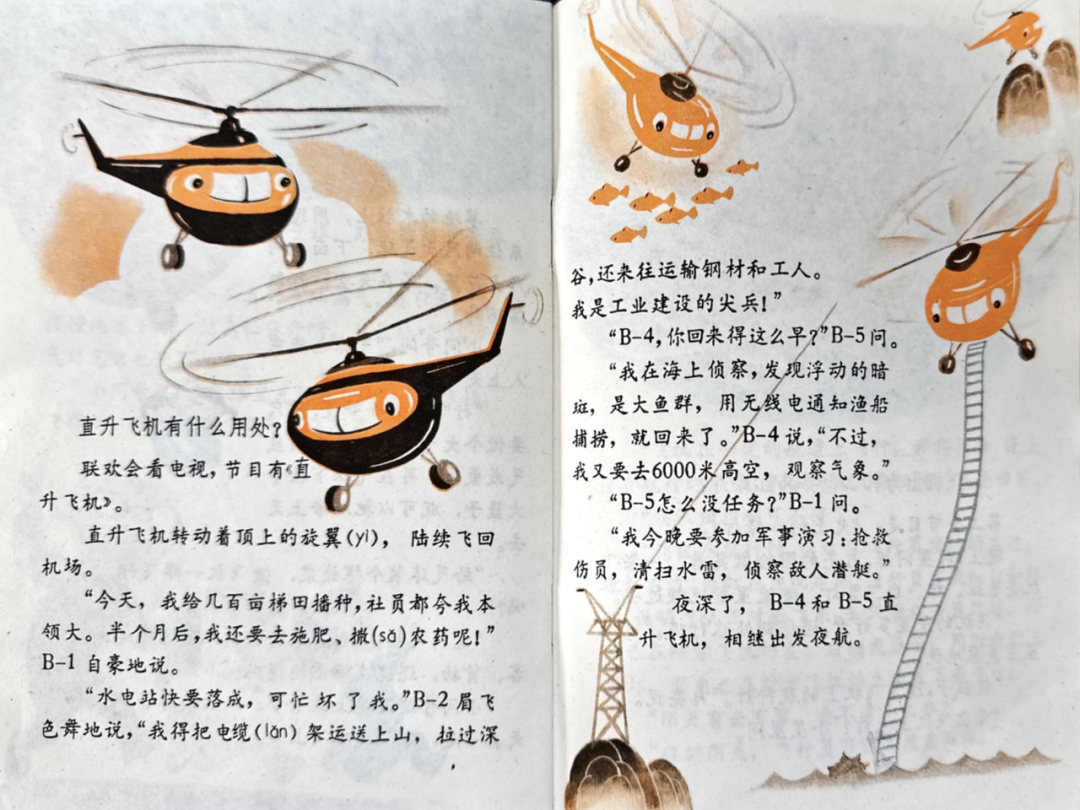 直升飞机有什么用处?
联欢会看电视,节目有《直
升飞机》。
直升飞机转动着顶上的旋翼(yì),陆续飞回
机场。
“今天,我给几百亩梯田播种,社员都夸我本
领大。半个月后,我还要去施肥,撒(sǎ)农药呢!”
B-1 自豪地说。
“水电站快要落成,可忙坏了我。”B-2 眉飞
色舞地说,“我得把电缆(lǎn)架运送上山,拉过深
谷,还来往运输钢材和工人。
我是工业建设的尖兵!”
“B-4,你回来得这么早?”B-5问。
“我在海上侦察,发现浮动的暗
斑,是大鱼群,用无线电通知渔船
捕捞,就回来了。”B-4 说,“不过,
我又要去6000米高空,观察气象。”
“B-5怎么没任务?”B-1 问。
“我今晚要参加军事演习:抢救
伤员,清扫水雷,侦察敌人潜艇。”
夜深了,B-4 和 B-5 直
升飞机,相继出发夜航。